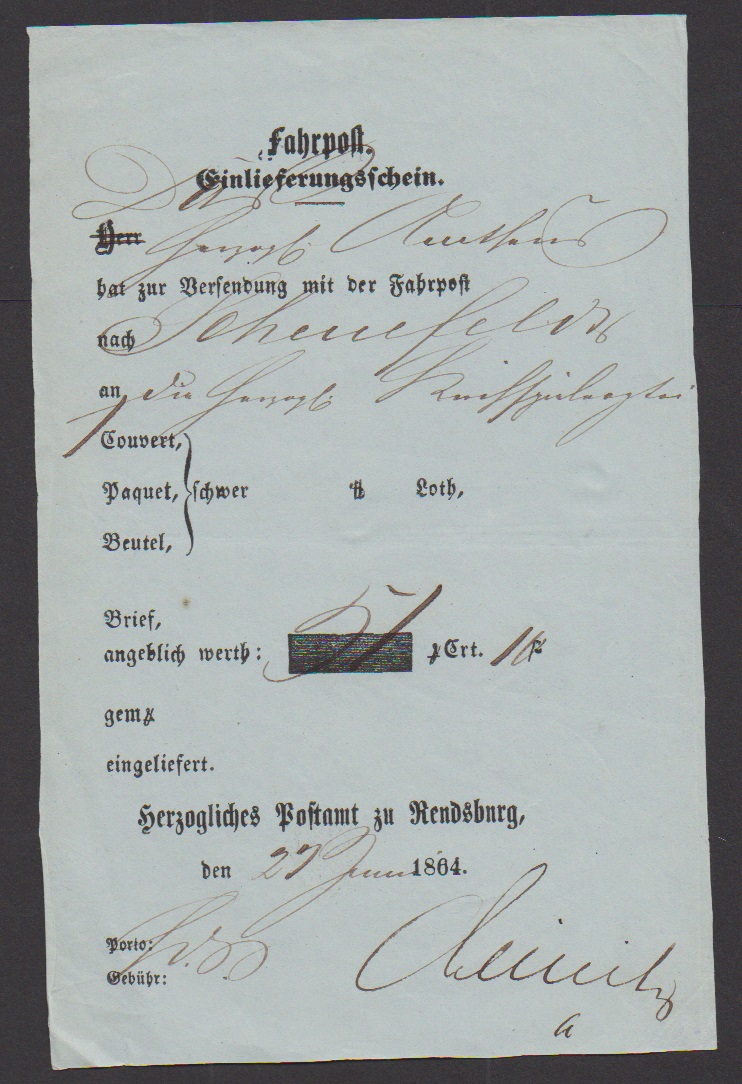 Fahrpost.
Einlieferungsschein.
Das
Herr Herzogl. Amthaus
hat zur Versendung mit der Fahrpost
nach Schenefeld
an die Herzogl. Kirchspielvogtei
1 Couvert,
Paquet, schwer ℔ Loth,
Beutel,
Brief,
angeblich werth: 51 Crt. 10
gem
eingeliefert.
Herzogliches Postamt zu Rendsburg,
den 27 Juni 1864.
Porto:
Gebühr: